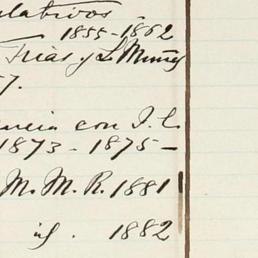 lativos
1855-1862
Trias y L Muñoz
57.
encia con J. C.
1873 - 1875 -
M. M. R. 1881
id. 1882